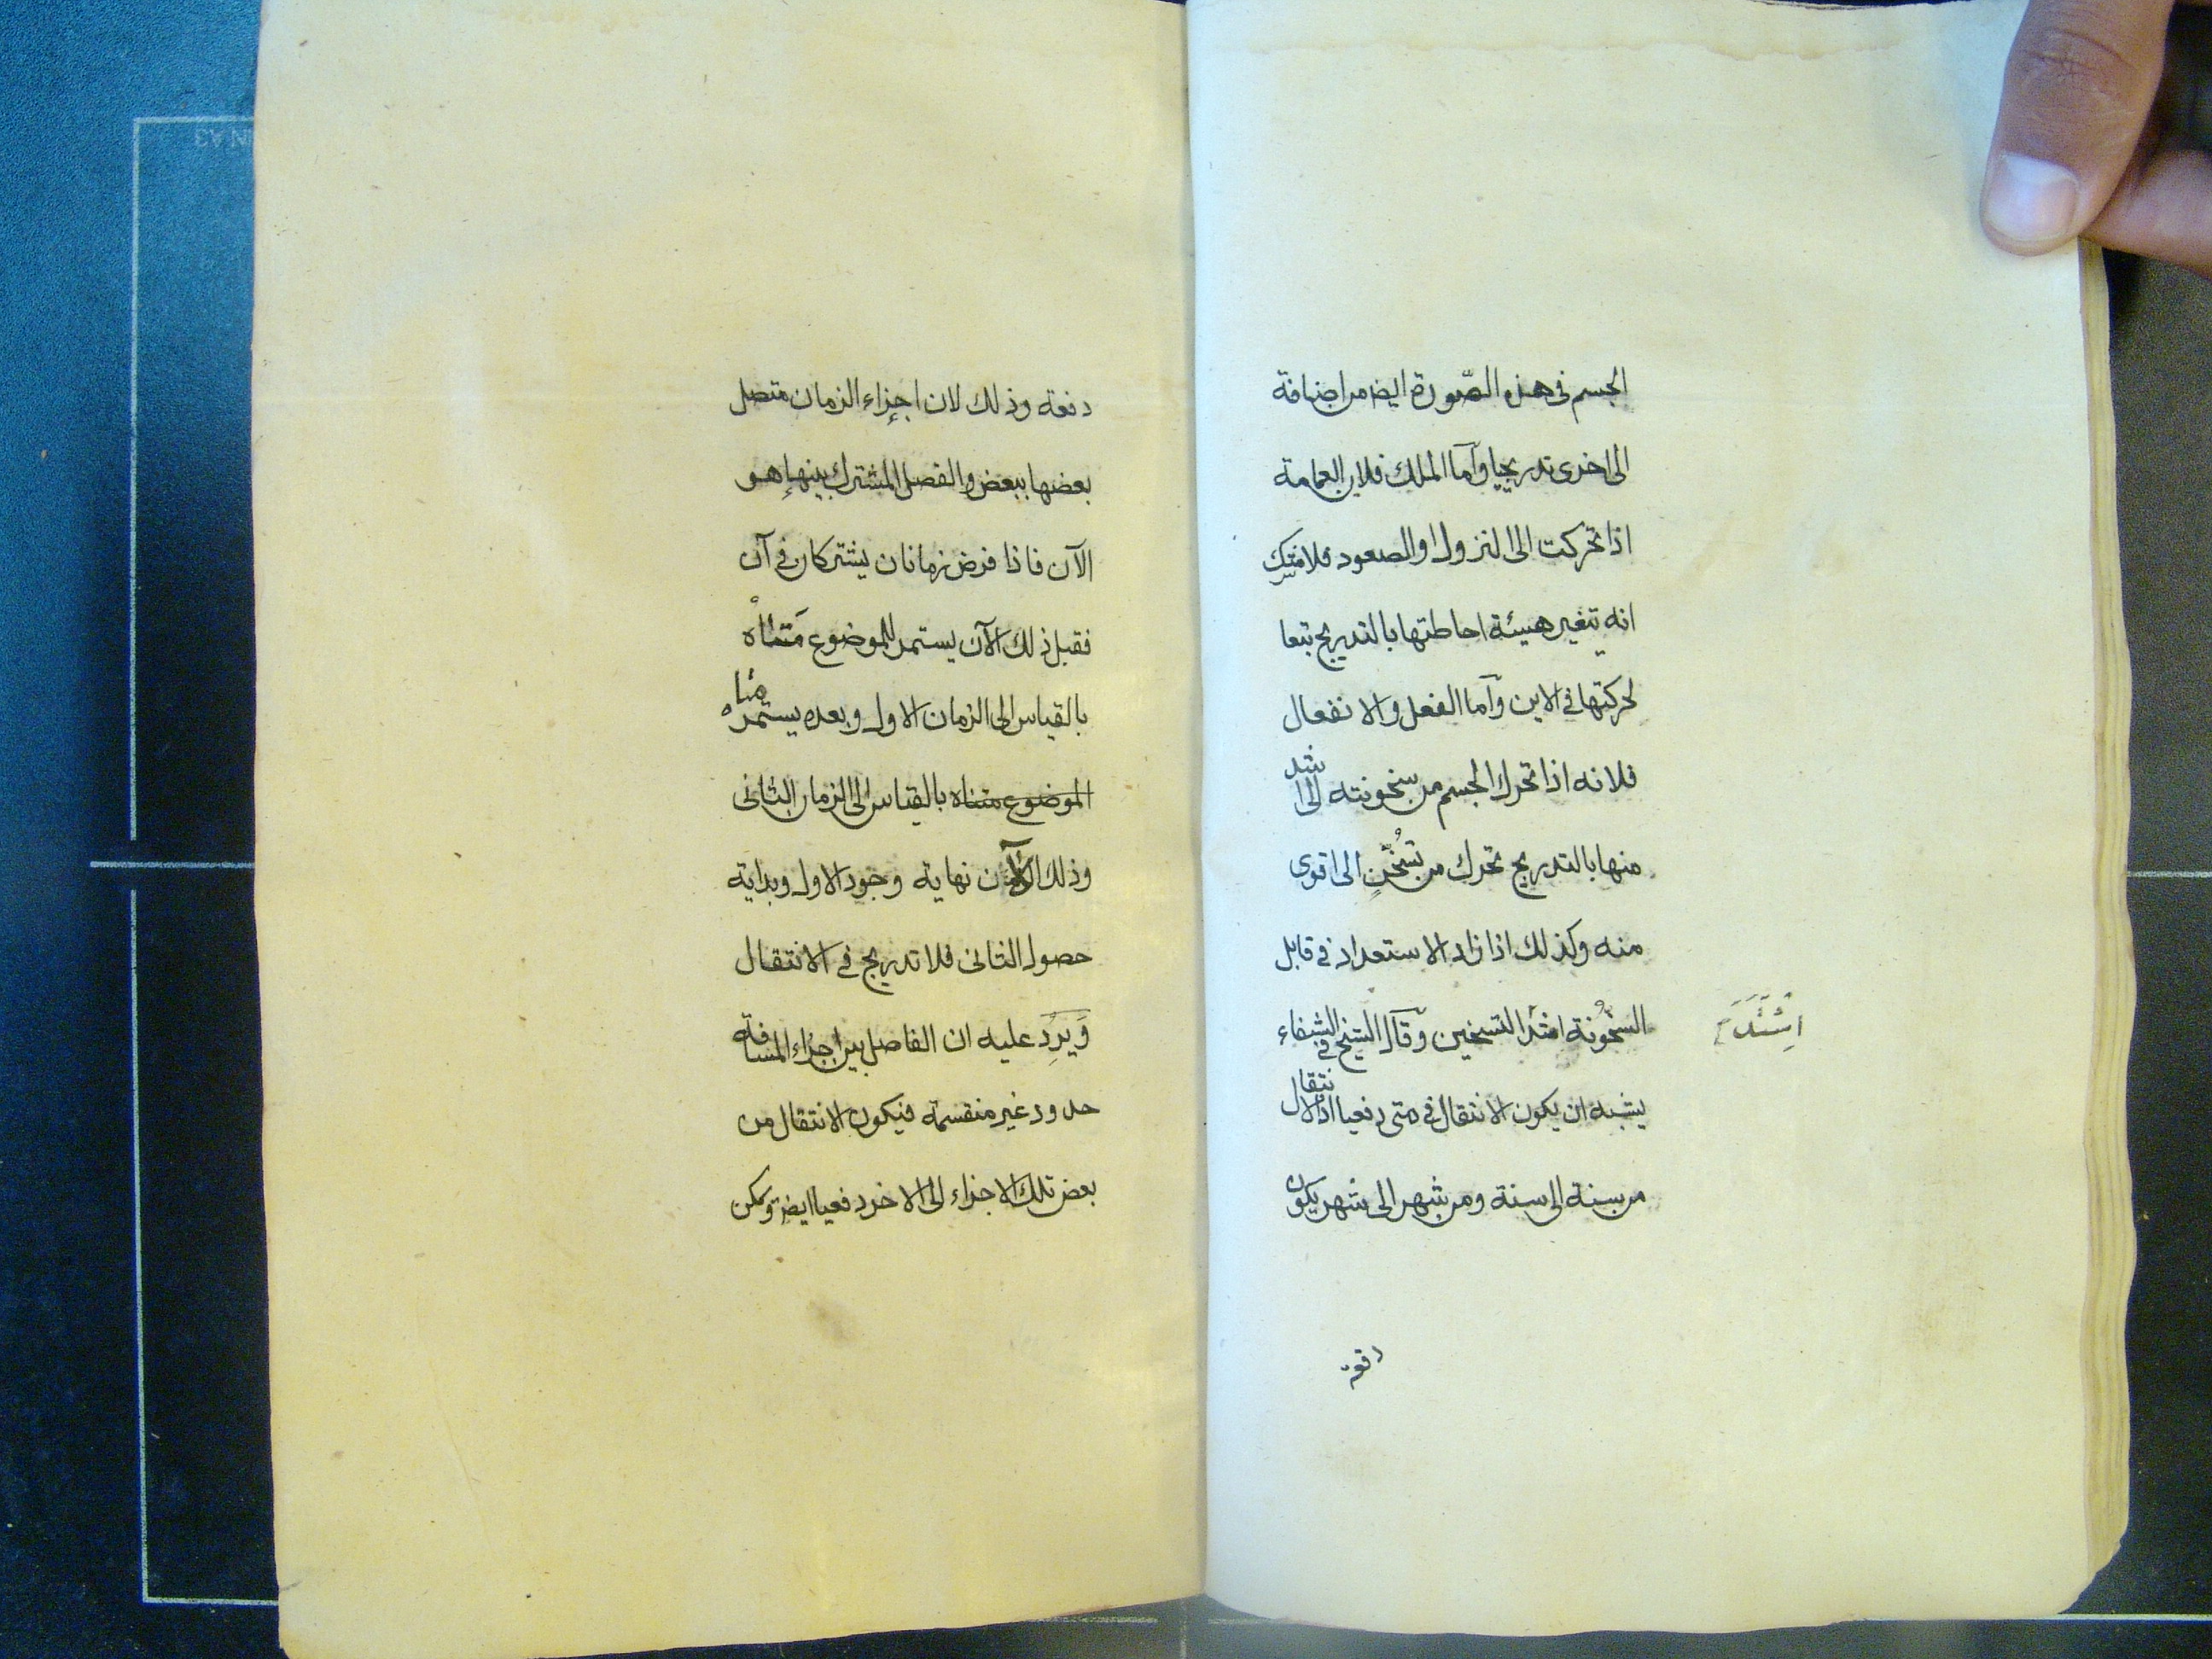 الجسم فی هذه الصّورة ایض من اضافة
الی اخری تدریجیا وآما الملك فلان العمامة
اذا تحرکت الی النزول او الصعود فلا شك
انه یتغیر هیئة احاطتها بالتدریج تبعا
لحرکتها فی الاین وآما الفعل والانفعال
فلانه اذا تحرك الجسم من سخونته الی اشد
منها بالتدریج تحرك من تَسُخّنٍ الی اقوی
منه وکذلك اذا زاد الاستعداد فی قابل
السخُونة اشتد التسخین وقآل الشیخ فی الشفاء
اِشْتَدَّ م
یشبه ان یکون الانتقال فی متی دفعیا اذ الانتقال
من سنة الی سنة ومن شهر الی شهر یکون
دفعة
دفعة وذلك لان اجزاء الزمان متصل
بعضها ببعض والفصل المشترك بینها هو
الآن فاذا فرض زمانان یشترکان فی آن
فقبل ذلك الآن یستمر للموضوع متاه
بالقیاس الی الزمان الاول وبعده یستمر متاه
الموضوع متاه بالقیاس الی الزمان الثانی
وذلك الآن نهایة وجود الاول وبدایة
حصول الثانی فلا تدریج فی الانتقال
وَیَرِد علیه ان الفاصل بین اجزاء المسافة
حدود غیر منقسمة فیکون الانتقال من
بعض تلك الاجزاء الی الاخر دفعیا ایض ویمکن